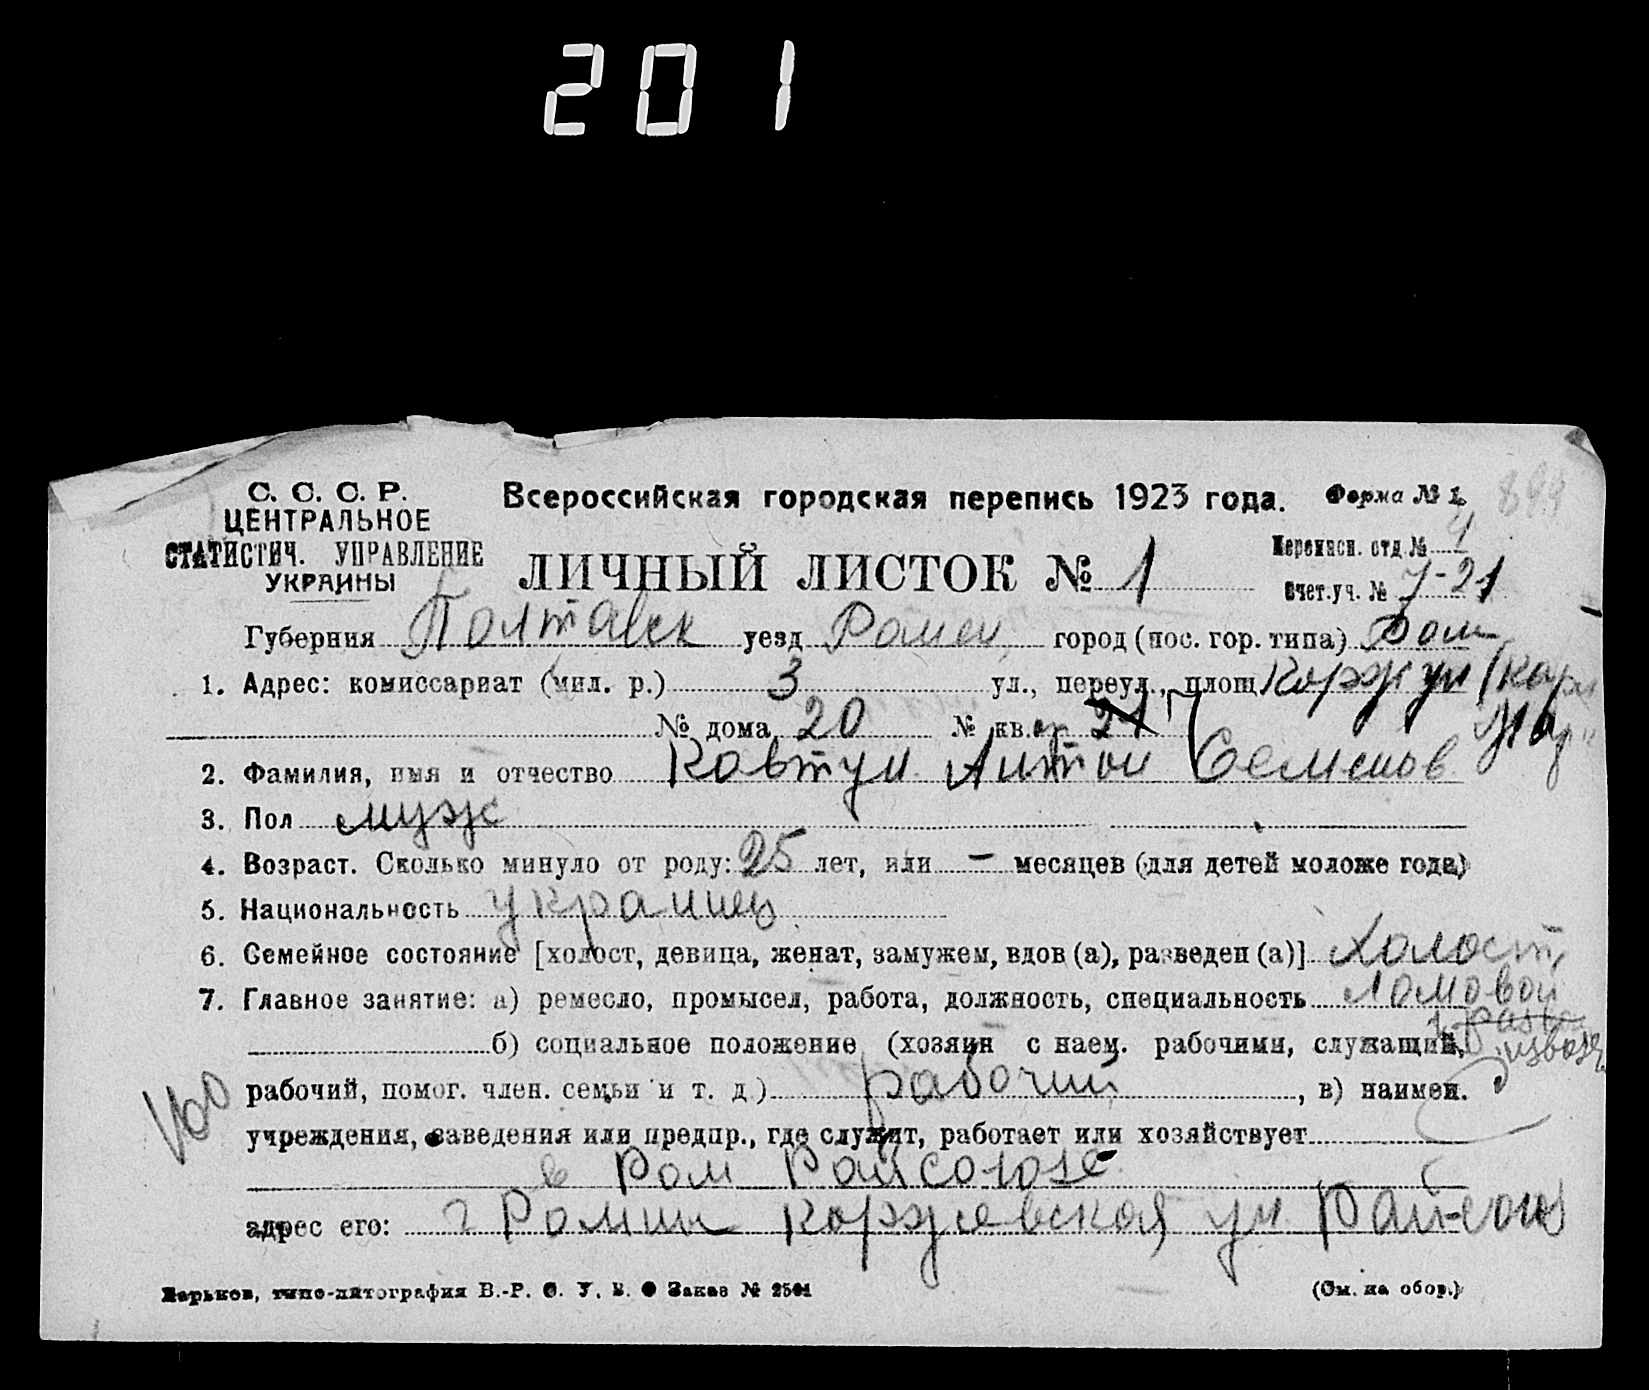 201
С. С. С. Р.
ЦЕНТРАЛЬНОЕ
СТАТИСТИЧ. УПРАВЛЕНИЕ
УКРАИНЫ
Всероссийская городская перепись 1923 года.
Форма № 1
899
ЛИЧНЫЙ ЛИСТОК № 1
Переписн. отд. № 4
Счет. уч. № 7-21
Губерния Полтавск уезд Ромен город (пос. гор. типа) Ром
1. Адрес: комиссариат (мил. р.) 3 ул., переул., площ. Корж ул (Карл
№ дома 20 № кв. 21
2. Фамилия, имя и отчество Ковтун Антон Семенов
3. Пол муж
4. Возраст. Сколько минуло от роду: 25 лет, или — месяцев (для детей моложе года)
5. Национальность украинец
6. Семейное состояние [холост, девица, женат, замужем, вдов (а), разведен (а)] Холост
7. Главное занятие: а) ремесло, промысел, работа, должность, специальность Ломовой
извозч
б) социальное положение (хозяин с наем. рабочими, служащий,
рабочий, помог. член. семьи и т. д.) рабочий, в) наимен.
160
учреждения, заведения или предпр., где служит, работает или хозяйствует
в Ром Райсоюзе
адрес его: г Ромны Коржевская ул Райсоюз
Харьков, типо-литография В.-Р. С. У. В. О Заказ № 2501
(См. на обор.)